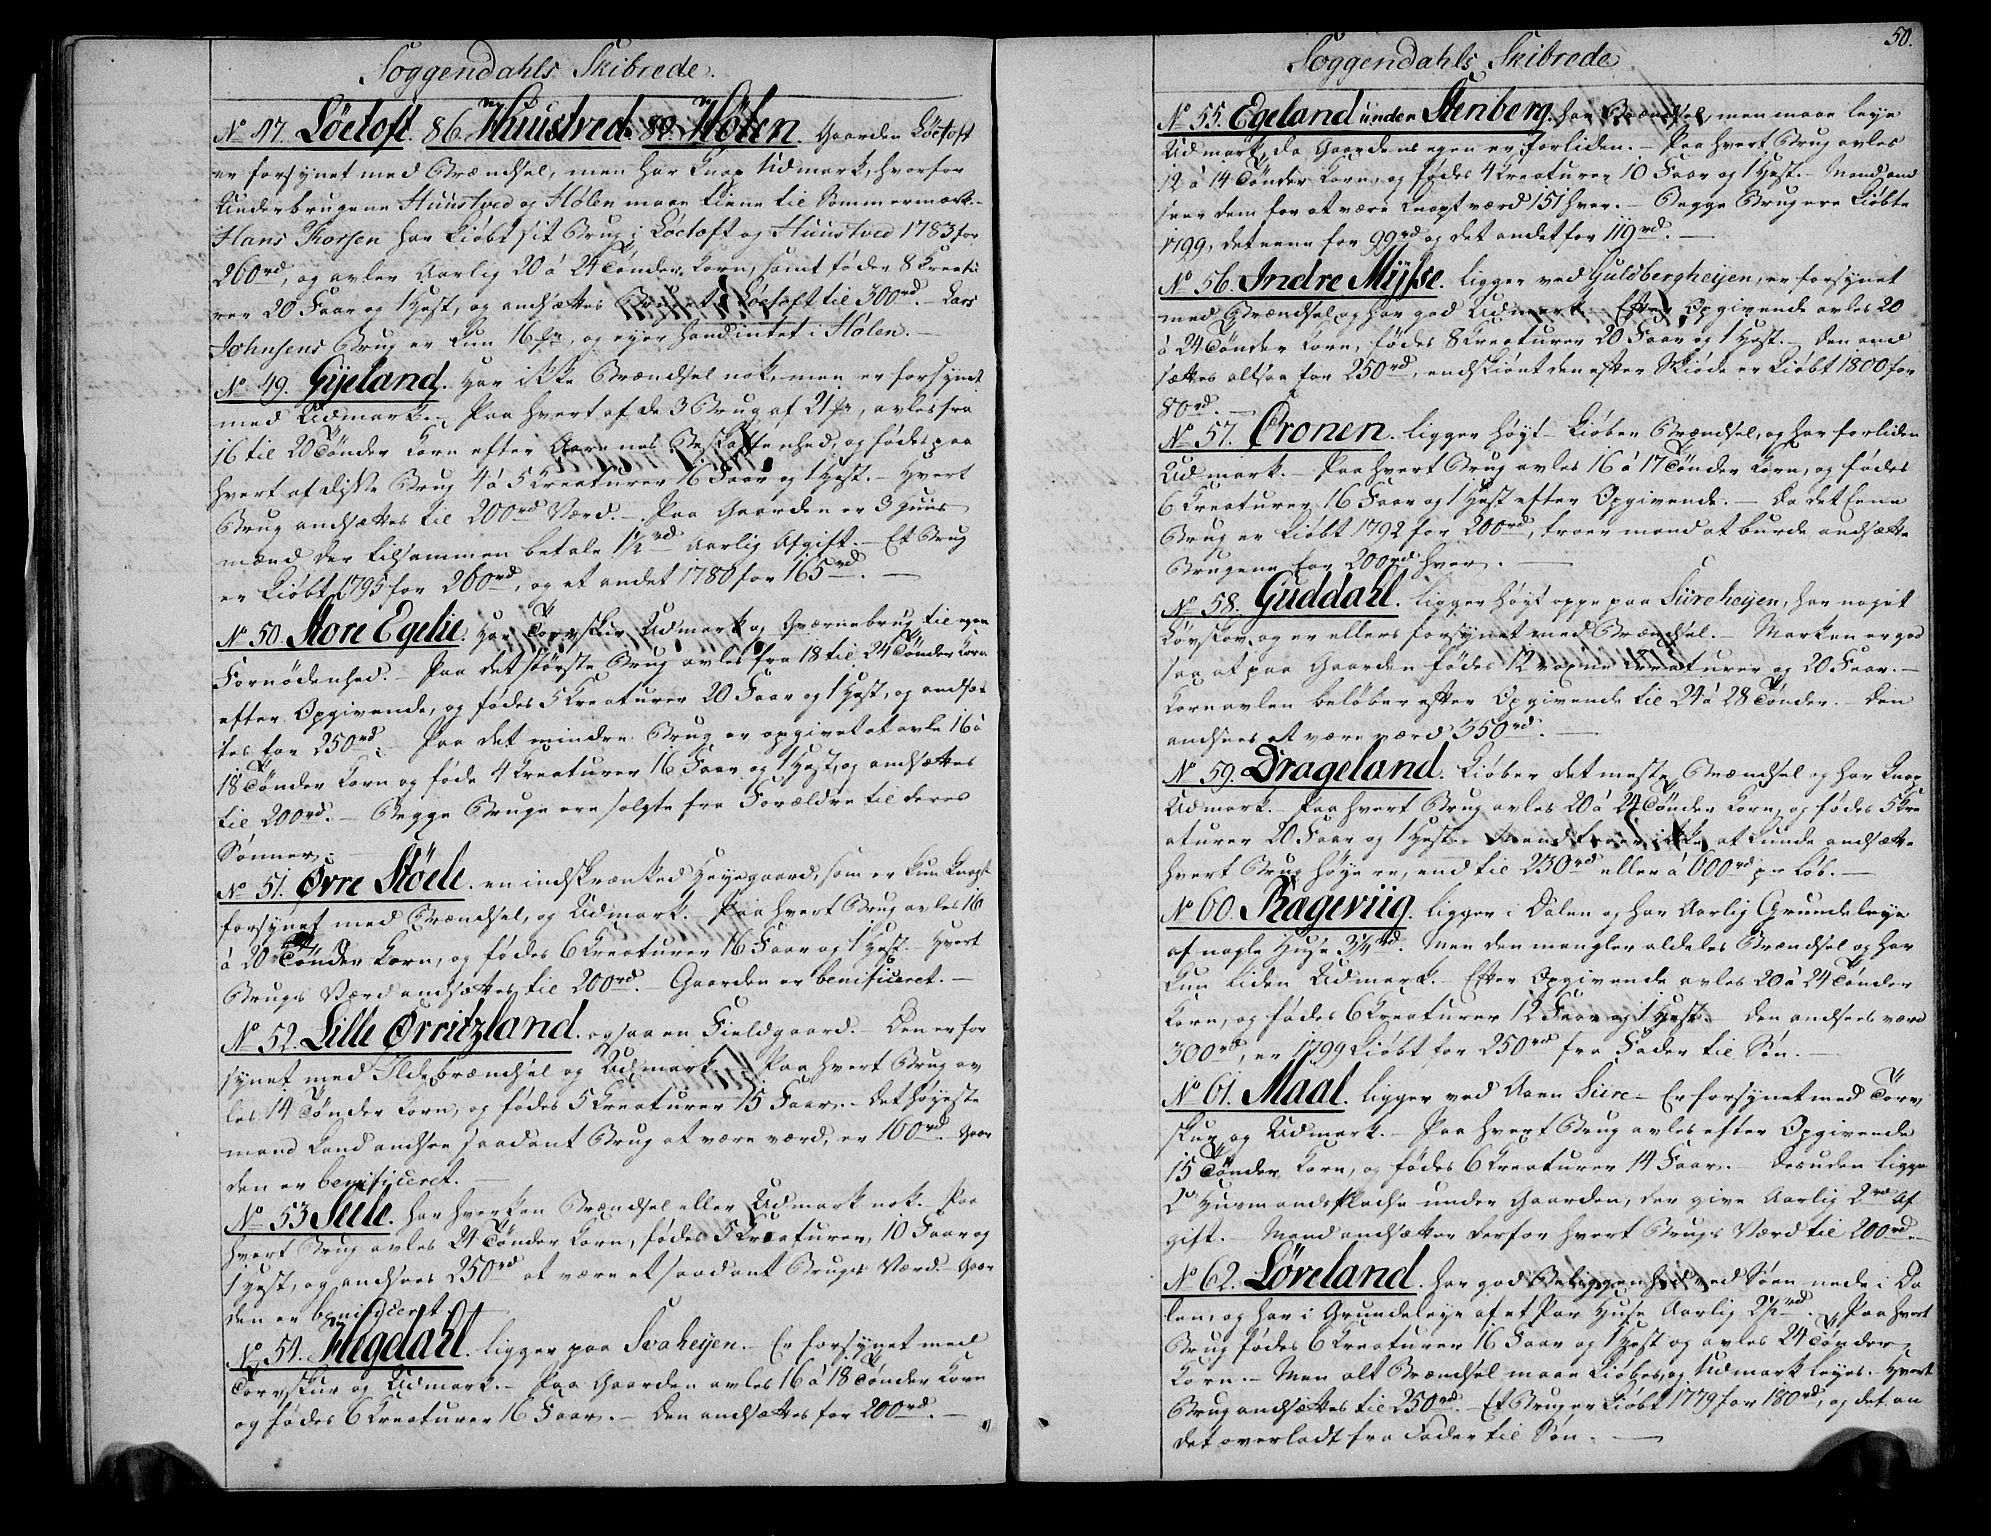 Soggendahls Skibrede.
No 47. Löetoft. 86. Huustved. 89. Hølen. Gaarden Löetoft
er forsynet med Brændsel, men har knap Udmark, hvorfor
Underbrugene Huustved og Hølen maae tiene til Sommermark.
Hans Thorsen har kiöbt sit Brug i Löetoft og Huustved 1783 for
260rd, og avler Aarlig 20 à 24 Tönder Korn, samt föder 8 Kreatu-
rer 20 Faar og 1 Hest, og ansættes Bruget i Löetoft til 300rd. Lars
Johnsens Brug er kun 16 , og eyer hand intet i Hølen.
No 49. Gyeland. Har ikke Brændsel nok, men er forsynet
med Udmark. Paa hvert af de 3 Brug af 21 , avles fra
16 til 20 Tönder Korn efter Aarenes Beskaffenhed, og födes paa
hvert af disse Brug 4 à 5 Kreaturer 16 Faar og 1 Hest. Hvert
Brug andsættes til 200rd Værd. Paa Gaarden er 3 Huus
mænd der tilsammen betale 1½rd Aarlig Afgift. Et Brug
er kiöbt 1795 for 260rd, og et andet 1780 for 165rd.
No 50. Store Egelie. Har Torvskur, Udmark og Qværnebrug til egen
Fornödenhed. Paa det störste Brug avles fra 18 til 24 Tönder Korn
efter Opgivende, og födes 5 Kreaturer 20 Faar og 1 Hest, og andsæt-
tes for 250rd. Paa det mindre Brug er opgivet at avle 16 à
18 Tönder Korn og föde 4 Kreaturer 16 Faar og 1 Hest, og andsættes
til 200rd. Begge Bruge ere solgte fra Forældre til deres
Sønner.
No 51. Øvre Stöele. en indskrænked Heyegaard, som er kun knapt
forsynet med Brændsel, og Udmark. Paa hvert Brug avles 16
à 20 Tönder Korn, og födes 6 Kreaturer 16 Faar og 1 Hest. Hvert
Brugs Værd andsættes til 200rd. Gaarden er benificeret.
No 52. Lille Ørritzland. ogsaa en Fieldgaard. Den er for
synet med Ildebrændsel og Udmark. Paa hvert Brug av
les 14 Tönder Korn, og födes 5 Kreaturer 15 Faar. Det höyeste
mand kand andsee saadant Brug at være værd, er 100rd. Gaar
den er benificeret.
No 53. Seele. har hverken Brændsel eller Udmark nok. Paa
hvert Brug avles 24 Tönder Korn, födes 5 Kreaturer, 10 Faar og
1 Hest, og andsees 250rd at være et saadant Brugs Værd. Gaar
den er benificeret.
No 54. Hegdahl. ligger paa Svaheyen. Er forsynet med
Torvskur og Udmark. Paa Gaarden avles 16 à 18 Tönder Korn
og födes 6 Kreaturer 16 Faar. Den andsættes for 200rd.
50.
Soggendahls Skibrede
No 55. Egeland under Stenberg. har Brændsel, men maae leye
Udmark, da Gaardens egen er forliden. Paa hvert Brug avles
12 à 14 Tönder Korn, og födes 4 Kreaturer 10 Faar og 1 Hest. Mand and
seer dem for at være knapt værd 151 hver. Begge Brug ere kiöbte
1799, det eene for 99rd og det andet for 119rd.
No 56. Indre Mysse. ligger ved Guldbergheyen, er forsynet
med Brændsel og har god Udmark. Efter Opgivende avles 20
à 24 Tönder Korn, födes 8 Kreaturer 20 Faar og 1 Hest. Den and
sættes altsaa for 250rd, endskiönt den efter Skiöde er kiöbt 1800 for
80rd.
No 57. Cronen. ligger höyt. kiöber Brændsel, og har forliden
Udmark. Paa hvert Brug avles 16 à 17 Tönder Korn, og födes
6 Kreaturer, 16 Faar og 1 Hest efter Opgivende. Da det Eene
Brug er kiöbt 1792 for 200rd, troer mand at burde andsætte
Brugene for 200rd hver.
No 58. Guddahl. ligger höyt oppe paa Siireheyen, har noget
Lövskov og er ellers forsynet med Brændsel. Marken er god
saa at paa Gaarden födes 12 voxne Kreaturer og 20 Faar.
Kornavlen belöber efter Opgivende til 24 à 28 Tönder. Den
andsees at være værd 350rd.
No 59. Drageland. kiöber det meste Brændsel og har knap
Udmark. Paa hvert Brug avles 20 à 24 Tönder Korn, og födes 5 Kre
aturer 20 Faar og 1 Hest. Mand troer ikke at kunde andsætte
hvert Brug höyere, end til 230rd eller à 600rd pr Löb.
No 60. Rageviig. ligger i Dalen og har Aarlig Grundeleye
af nogle Huse 3¼rd. Men den mangler aldeles Brændsel og har
kun liden Udmark. Efter Opgivende avles 20 à 24 Tönder
Korn, og födes 6 Kreaturer 12 Faar og 1 Hest. Den andsees værd
300rd, er 1799 kiöbt for 250rd fra Fader til Søn.
No 61. Maal. ligger ved Aaen Siire. Er forsynet med Torv
skur og Udmark. Paa hvert Brug avles efter Opgivende
15 Tönder Korn, og födes 6 Kreaturer 14 Faar. Desuden ligge
2 Husmandspladse under Gaarden, der give Aarlig 2rd Af
gift. Mand andsætter derfor hvert Brugs Værd til 200rd.
No 62. Löreland. har god Beliggenhed ved Söen nede i Da
len, og har i Grundeleye af et Par Huse Aarlig 2½rd. Paa hvert
Brug födes 6 Kreaturer 16 Faar og 1 Hest og avles 24 Tönder
Korn. Men alt Brændsel maae kiöbes, og Udmark leyes. Hvert
Brug andsættes til 250rd. Et Brug er kiöbt 1779 for 180rd, og det an
det overladt fra Fader til Søn.